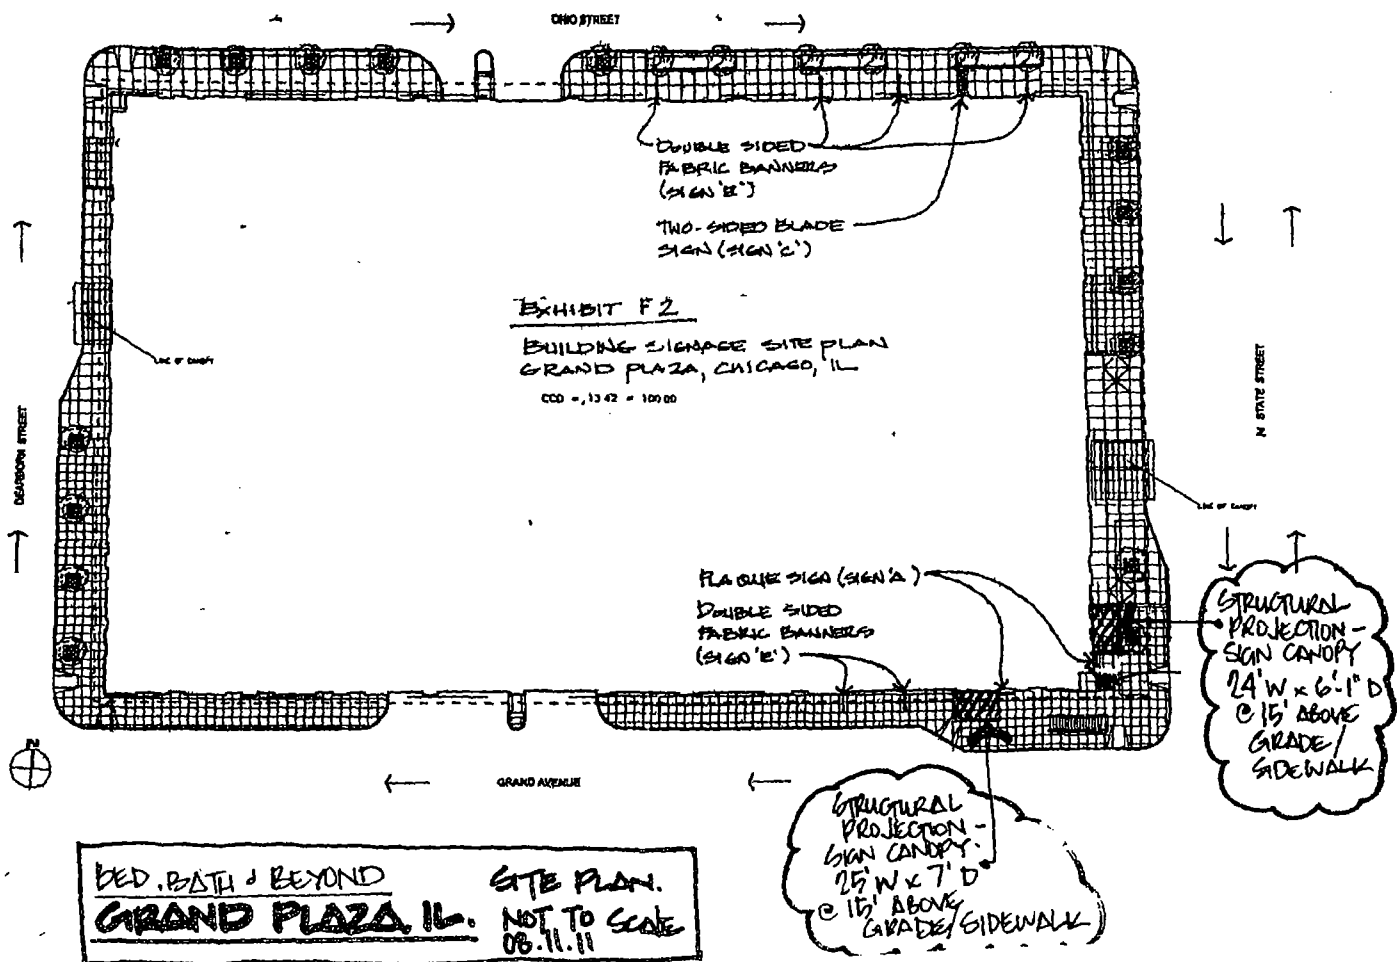 OHIO STREET
DOUBLE SIDED
FABRIC BANNERS
(SIGN 'E')
TWO-SIDED BLADE
SIGN (SIGN 'C')
EXHIBIT F2
BUILDING SIGNAGE SITE PLAN
GRAND PLAZA, CHICAGO, IL
LINE OF CANOPY
DEARBORN STREET
N STATE STREET
LINE OF CANOPY
PLAQUE SIGN (SIGN 'A')
DOUBLE SIDED
FABRIC BANNERS
(SIGN 'E')
STRUCTURAL
PROJECTION -
SIGN CANOPY
24' W x 6'-1" D
@ 15' ABOVE
GRADE/
SIDEWALK
N
GRAND AVENUE
STRUCTURAL
PROJECTION -
SIGN CANOPY.
25' W x 7' D
@ 15' ABOVE
GRADE/SIDEWALK
BED, BATH & BEYOND
GRAND PLAZA, IL.
SITE PLAN.
NOT TO SCALE
08.11.11